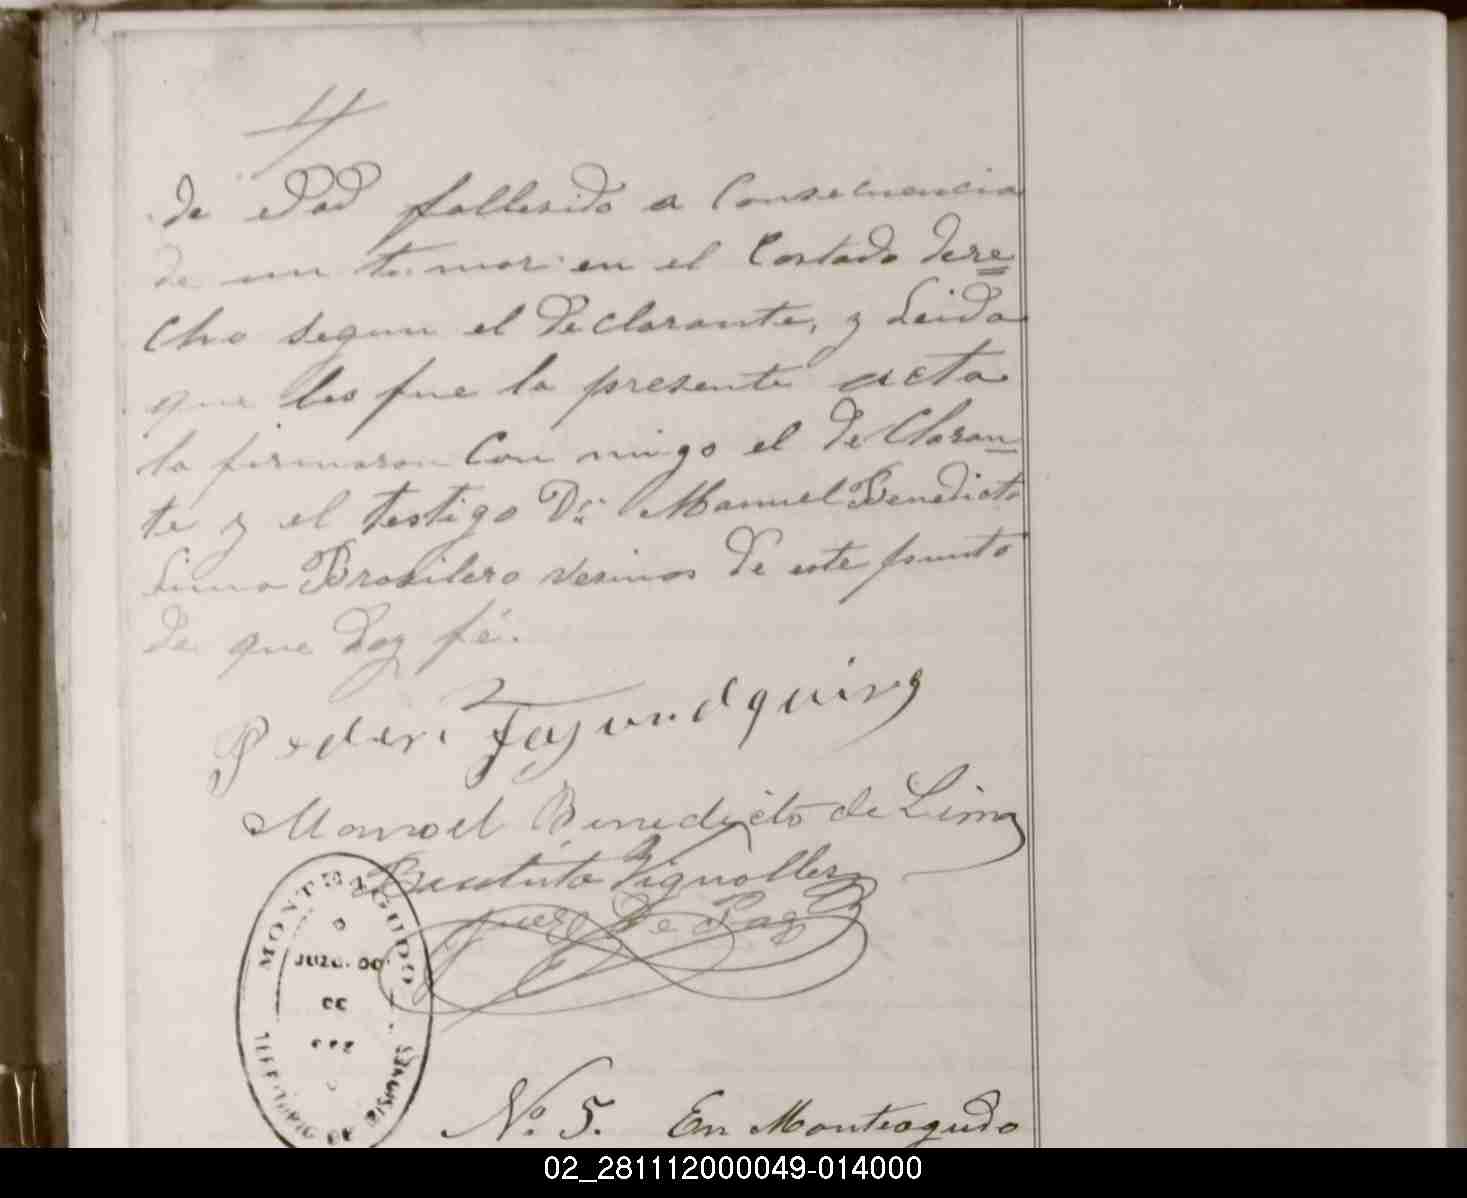 4
de edad fallesido a Consecuencia
de un tumor en el Costado dere
cho segun el declarante, y Leida
que les fue la presente acta
la firmaron Con migo el declaran
te y el testigo Dn Manuel Benedicto
Lima Brasilero vesinos de este punto
de que doy fé.
Manoel Benedicto de Lima
Bautista Vignolles
Juez de Paz
MONTEAGUDO
JUZGADO
DE
PAZ
TERRITORIO DE MISIONES
No. 5. En Monteagudo
02_281112000049-014000